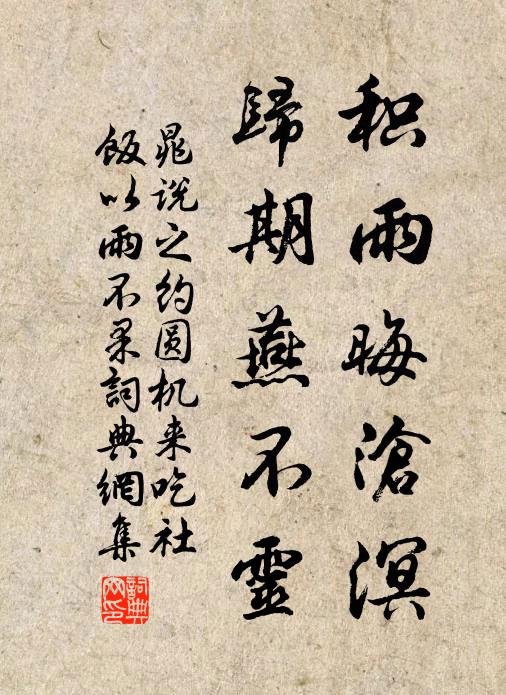 积雨晦滄溟
歸期燕不靈
晁説之约圆机来吃社
飯以雨不果詞典網集
詞典网印